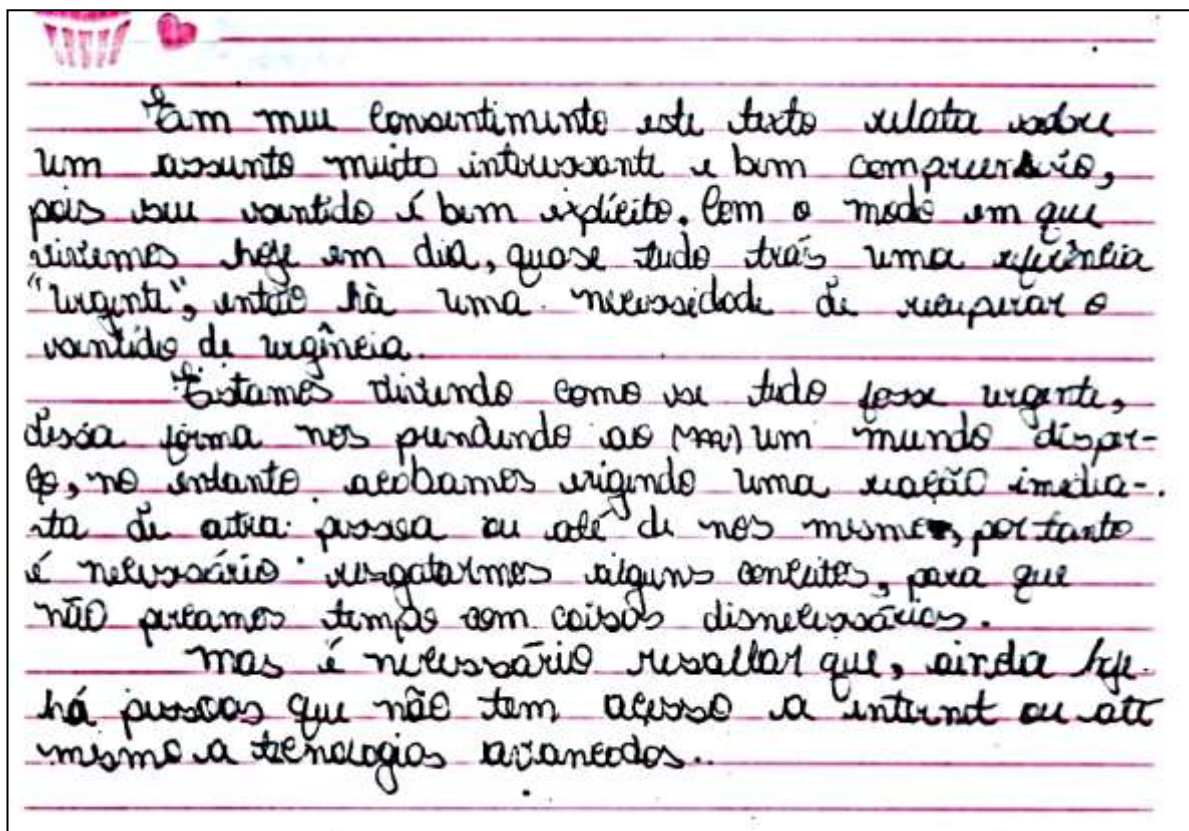 Em meu consentimento este texto relata sobre
um assunto muito interessante e bem compreensivo,
pois seu sentido é bem explícito. Com o modo em que
vivemos hoje em dia, quase tudo trás uma referência
"urgente", então hà uma necessidade de recuperar o
sentido de urgência.
Estamos vivendo como se tudo fosse urgente,
dessa forma nos prendendo ao (m) um mundo
no entanto acabamos exigindo uma reação imedia-
ta de outra pessoa ou até de nos mesmo, portanto
é necessário resgatarmos alguns conceitos, para que
não percamos tempo com coisas disnecessárias.
Mas é necessário resaltar que, ainda hoje
há pessoas que não tem acesso a internet ou até
mesmo a tecnologias avancadas..